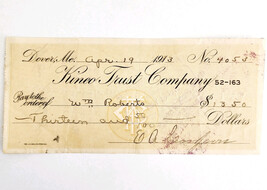 Dover, Me. Apr. 19 1913 No. 4053
Kineo Trust Company 52-163
Pay to the order of Wm Roberts $13.50
Thirteen and 50/100 Dollars
E A